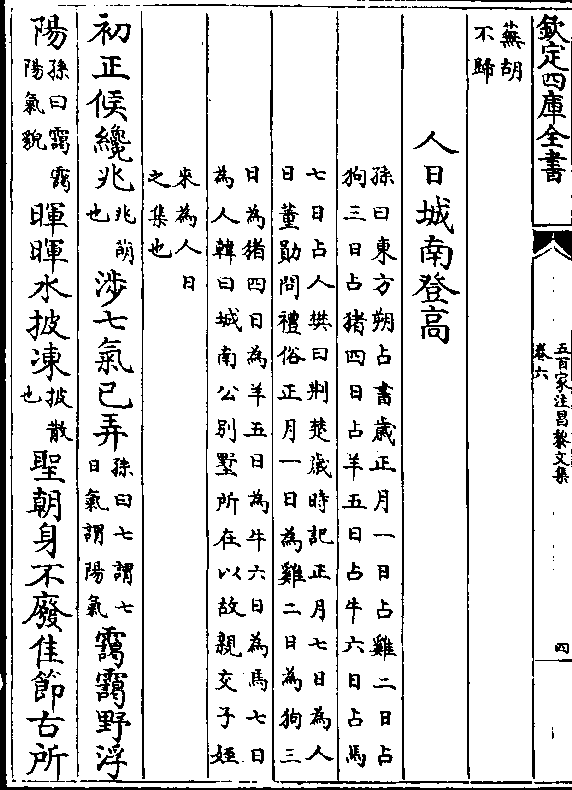 欽定四庫全書
五百家注昌黎文集
卷六
四
蕪胡
不歸
人日城南登高
孫曰東方朔占書歲正月一日占雞二日占
狗三日占猪四日占羊五日占牛六日占馬
七日占人樊曰荆楚歲時記正月七日為人
日董勛問禮俗正月一日為雞二日為狗三
日為猪四日為羊五日為牛六日為馬七日
為人韓曰城南公别墅所在以故親交子姪
來為人日
之集也
初正候纔兆兆萌也涉七氣已弄孫曰七謂七日氣謂陽氣靄靄野浮
陽孫曰靄靄陽氣貌暉暉水披凍披散也聖朝身不廢佳節古所